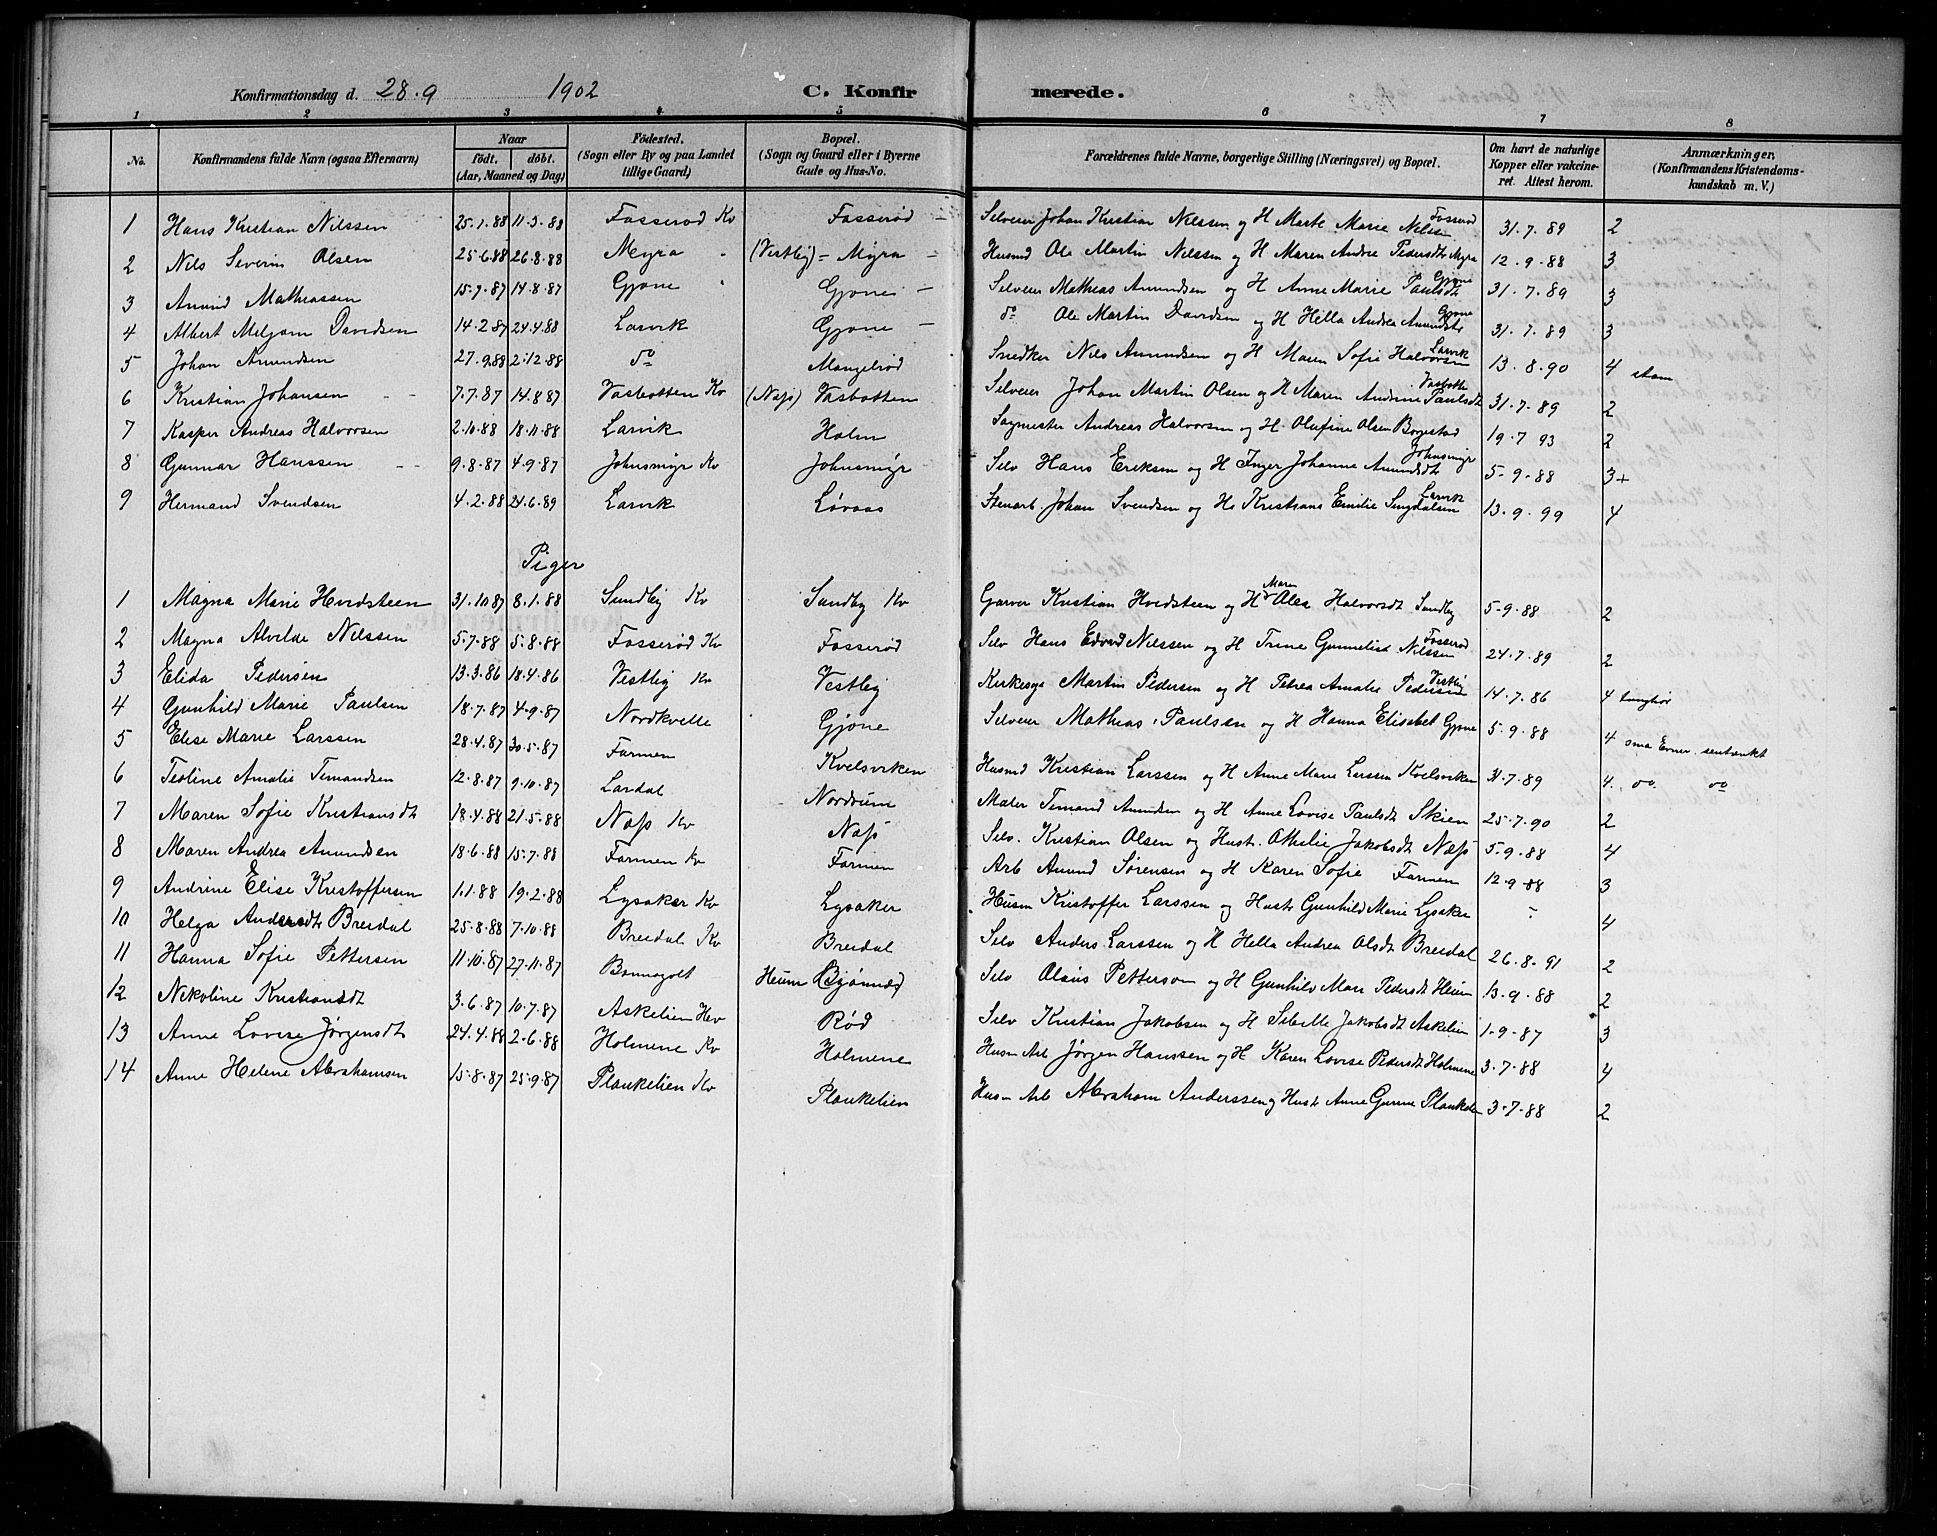 Konfirmationsdag d. 28.9 1902 C. Konfirmerede.
1 2 3 4 5 6 7 8
No. Konfirmandens fulde Navn (ogsaa Efternavn) Naar født. døbt. (Aar, Maaned og Dag) Fødested. (Sogn eller By og paa Landet tillige Gaard) Bopæl. (Sogn og Gaard eller i Byerne Gade og Hus-No. Forældrenes fulde Navne, borgerlige Stilling (Næringsvei) og Bopæl. Om havt de naturlige Kopper eller vakcineret. Attest herom. Anmærkninger. (Konfirmandens Kristendomskundskab m. V.)
1 Hans Kristian Nilssen 25.1.88 11.3.88 Fosserød Kv Fosserød Selveier Johan Kristian Nilssen og H Marte Marie Nilssen Fosserød 31.7.89 2
2 Nils Severin Olsen 25.6.88 26.8.88 Myra " (Vestby) = Myra Husmd Ole Martin Nilssen og H Maren Andrea Pedersdt Myra 12.9.88 3
3 Amund Mathiassen 15.7.87 14.8.87 Gjone " Gjone Selveier Mathias Amundsen og H Anne Marie Paulsdt Gjone 31.7.89 3
4 Albert Meljom Davidsen 14.2.87 24.4.88 Larvik Gjone do Ole Martin Davidsen og H Hella Andrea Amundsdt Gjone 31.7.89 3
5 Johan Amundsen 27.9.88 2.12.88 do Mangelrød Snedker Nils Amundsen og H Maren Sofie Halvorsen Larvik 13.8.90 4 stam
6 Kristian Johansen 7.7.87 14.8.87 Vasbotten Kv (Næss) Vasbotten Selveier Johan Martin Olsen og H Maren Andrine Paulsdt Vasbotten 31.7.89 2
7 Kasper Andreas Halvorsen 2.10.88 18.11.88 Larvik Holm Sagmester Andreas Halvorsen og H. Olufine Olsen Borgestad 19.7 93 2
8 Gunnar Hanssen 9.8.87 4.9.87 Johnsmyr Kv Johnsmyr Selv Hans Eriksen og H Inger Johanne Amundsdt Johnsmyr 5.9.88 3+
9 Hermand Svendsen 4.2.88 24.6.89 Larvik Løvaas Stenarb. Johan Svendsen og H Kristiane Emilie Larvik 13.9.99 4
Piger
1 Magna Marie Hvidsteen 31.10.87 8.1.88 Sundby Kv Sundby Kv Garver Kristian Hvidsteen og H Maren Halvorsdt Sundby 5.9.88 2
2 Magna Alvilde Nilssen 5.7.88 5.8.88 Fosserød Kv Fosserød Selv Hans Edvard Nilssen og H Trine Gunnelist Nilssen Fosserød 24.7.89 2
3 Elida Pedersen 13.3.86 18.4.86 Vestby Kv Vestby Kirkesge Martin Pedersen og H Petrea Amalie Pedersen Vestby 14.7.86 4 tunghør
4 Gunhild Marie Paulsen 18.7.87 4.9.87 Nordkvelle Gjone Selveier Mathias Paulsen og H Hanna Elisabet Gjone 5.9.88 4 sma Evner. sentænkt
5 Elise Marie Larssen 28.4.87 30.5.87 Farmen Kvelsviken Husmd Kristian Larssen og H Anne Marie Larssen Kvelsviken 31.7.89 4. do do
6 Teoline Amalie Temandsen 12.8.87 9.10.87 Lardal Nordrum Maler Temand Amundsen og H Anne Lovise Paulsdt Skien 25.7.90 2
7 Maren Sofie Kristiansdt 18.4.88 21.5.88 Næss Kv Næss Selv. Kristian Olsen og Hustr. Othilie Jakobsdt Næss 5.9.88 4
8 Maren Andrea Amundsen 18.6.88 15.7.88 Farmen Kv Farmen Arb Amund Sørensen og H Karen Sofie Farmen 12.9.88 3
9 Andrine Elise Kristoffersen 1.1.88 19.2.88 Lysaker Kv Lysaker Husm Kristoffer Larssen og Hustr Gunhild Marie Lysaker - 4
10 Helga Andersdt Breidal 25.8.88 7.10.88 Breidal Kv Breidal Selv Anders Larssen og H Hella Andrea Olsdt Breidal 26.8.91 2
11 Hanna Sofie Pettersen 11.10.87 27.11.87 Heum Selv Olaus Petterson og H Gunhild Mari Pedersdt Heum 13.9.88 2
12 Nikoline Kristiansdt 3.6.87 10.7.87 Askelien Hev Rød Selv Kristian Jakobsen og H Sibille Jakobsdt Askelien 1.9.87 3
13 Anne Lovise Jørgensdt 24.4.88 2.6.88 Holmene Kv Holmene Husm Arb Jørgen Hanssen og H Karen Lovise Pedersdt Holmene 3.7.88 4
14 Anne Helene Abrahamsen 15.8.87 25.9.87 Plankelien Kv Plankelien Husm Arb Abraham Anderssen og Hustr Anne Gurine Plankelien 3.7.88 2